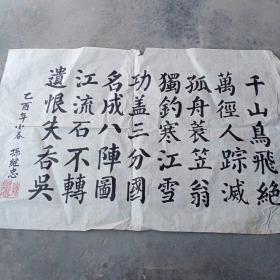 千山鳥飛絶
萬徑人踪滅
孤舟蓑笠翁
獨釣寒江雪
功盖三分國
名成八陣圖
江流石不轉
遺恨失吞吳
乙酉年小春 孫繼忠